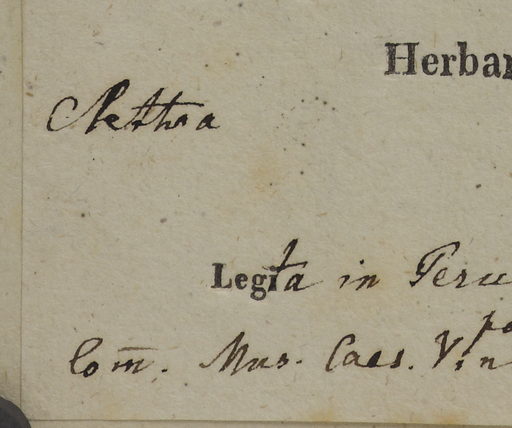 Herbar
Clethra
Legita in Peru
Com̅. Mus. Caes. Vin